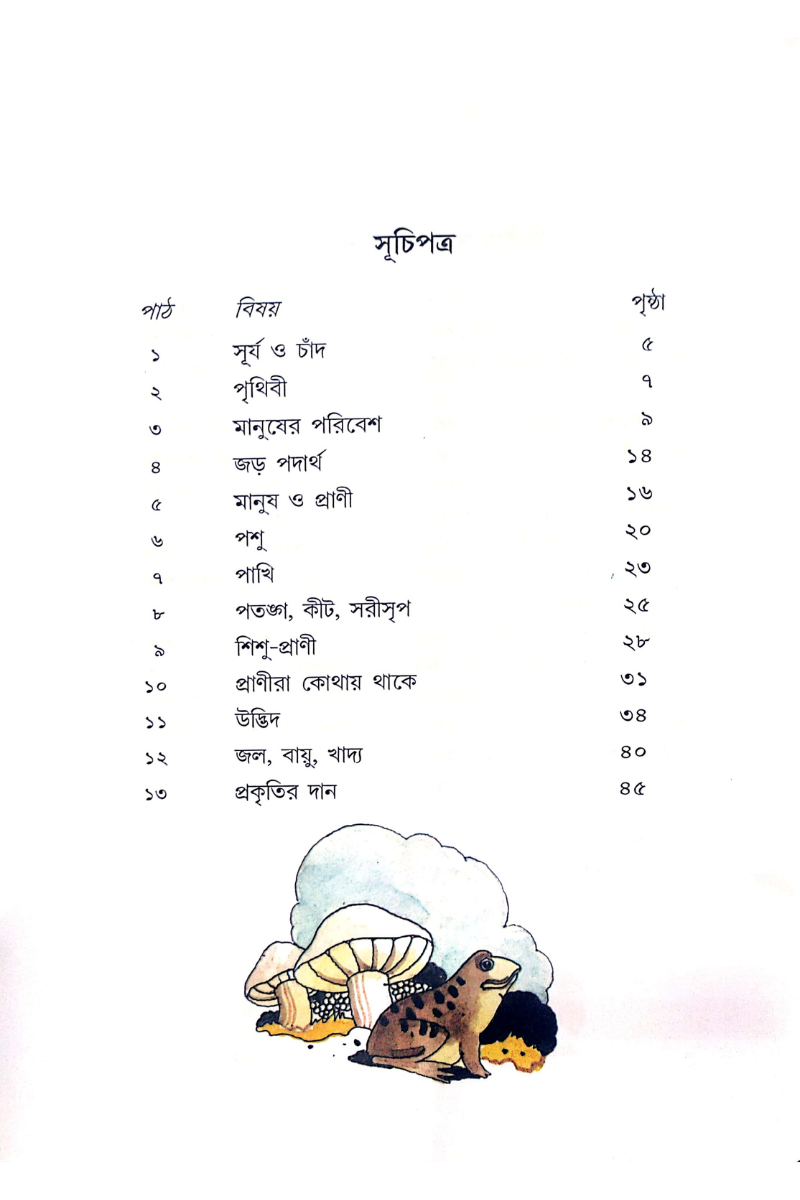 সূচিপত্র
পাঠ বিষয় পৃষ্ঠা
১ সূর্য ও চাঁদ ৫
২ পৃথিবী ৭
৩ মানুষের পরিবেশ ৯
৪ জড় পদার্থ ১৪
৫ মানুষ ও প্রাণী ১৬
৬ পশু ২০
৭ পাখি ২৩
৮ পতঙ্গ, কীট, সরীসৃপ ২৫
৯ শিশু-প্রাণী ২৮
১০ প্রাণীরা কোথায় থাকে ৩১
১১ উদ্ভিদ ৩৪
১২ জল, বায়ু, খাদ্য ৪০
১৩ প্রকৃতির দান ৪৫